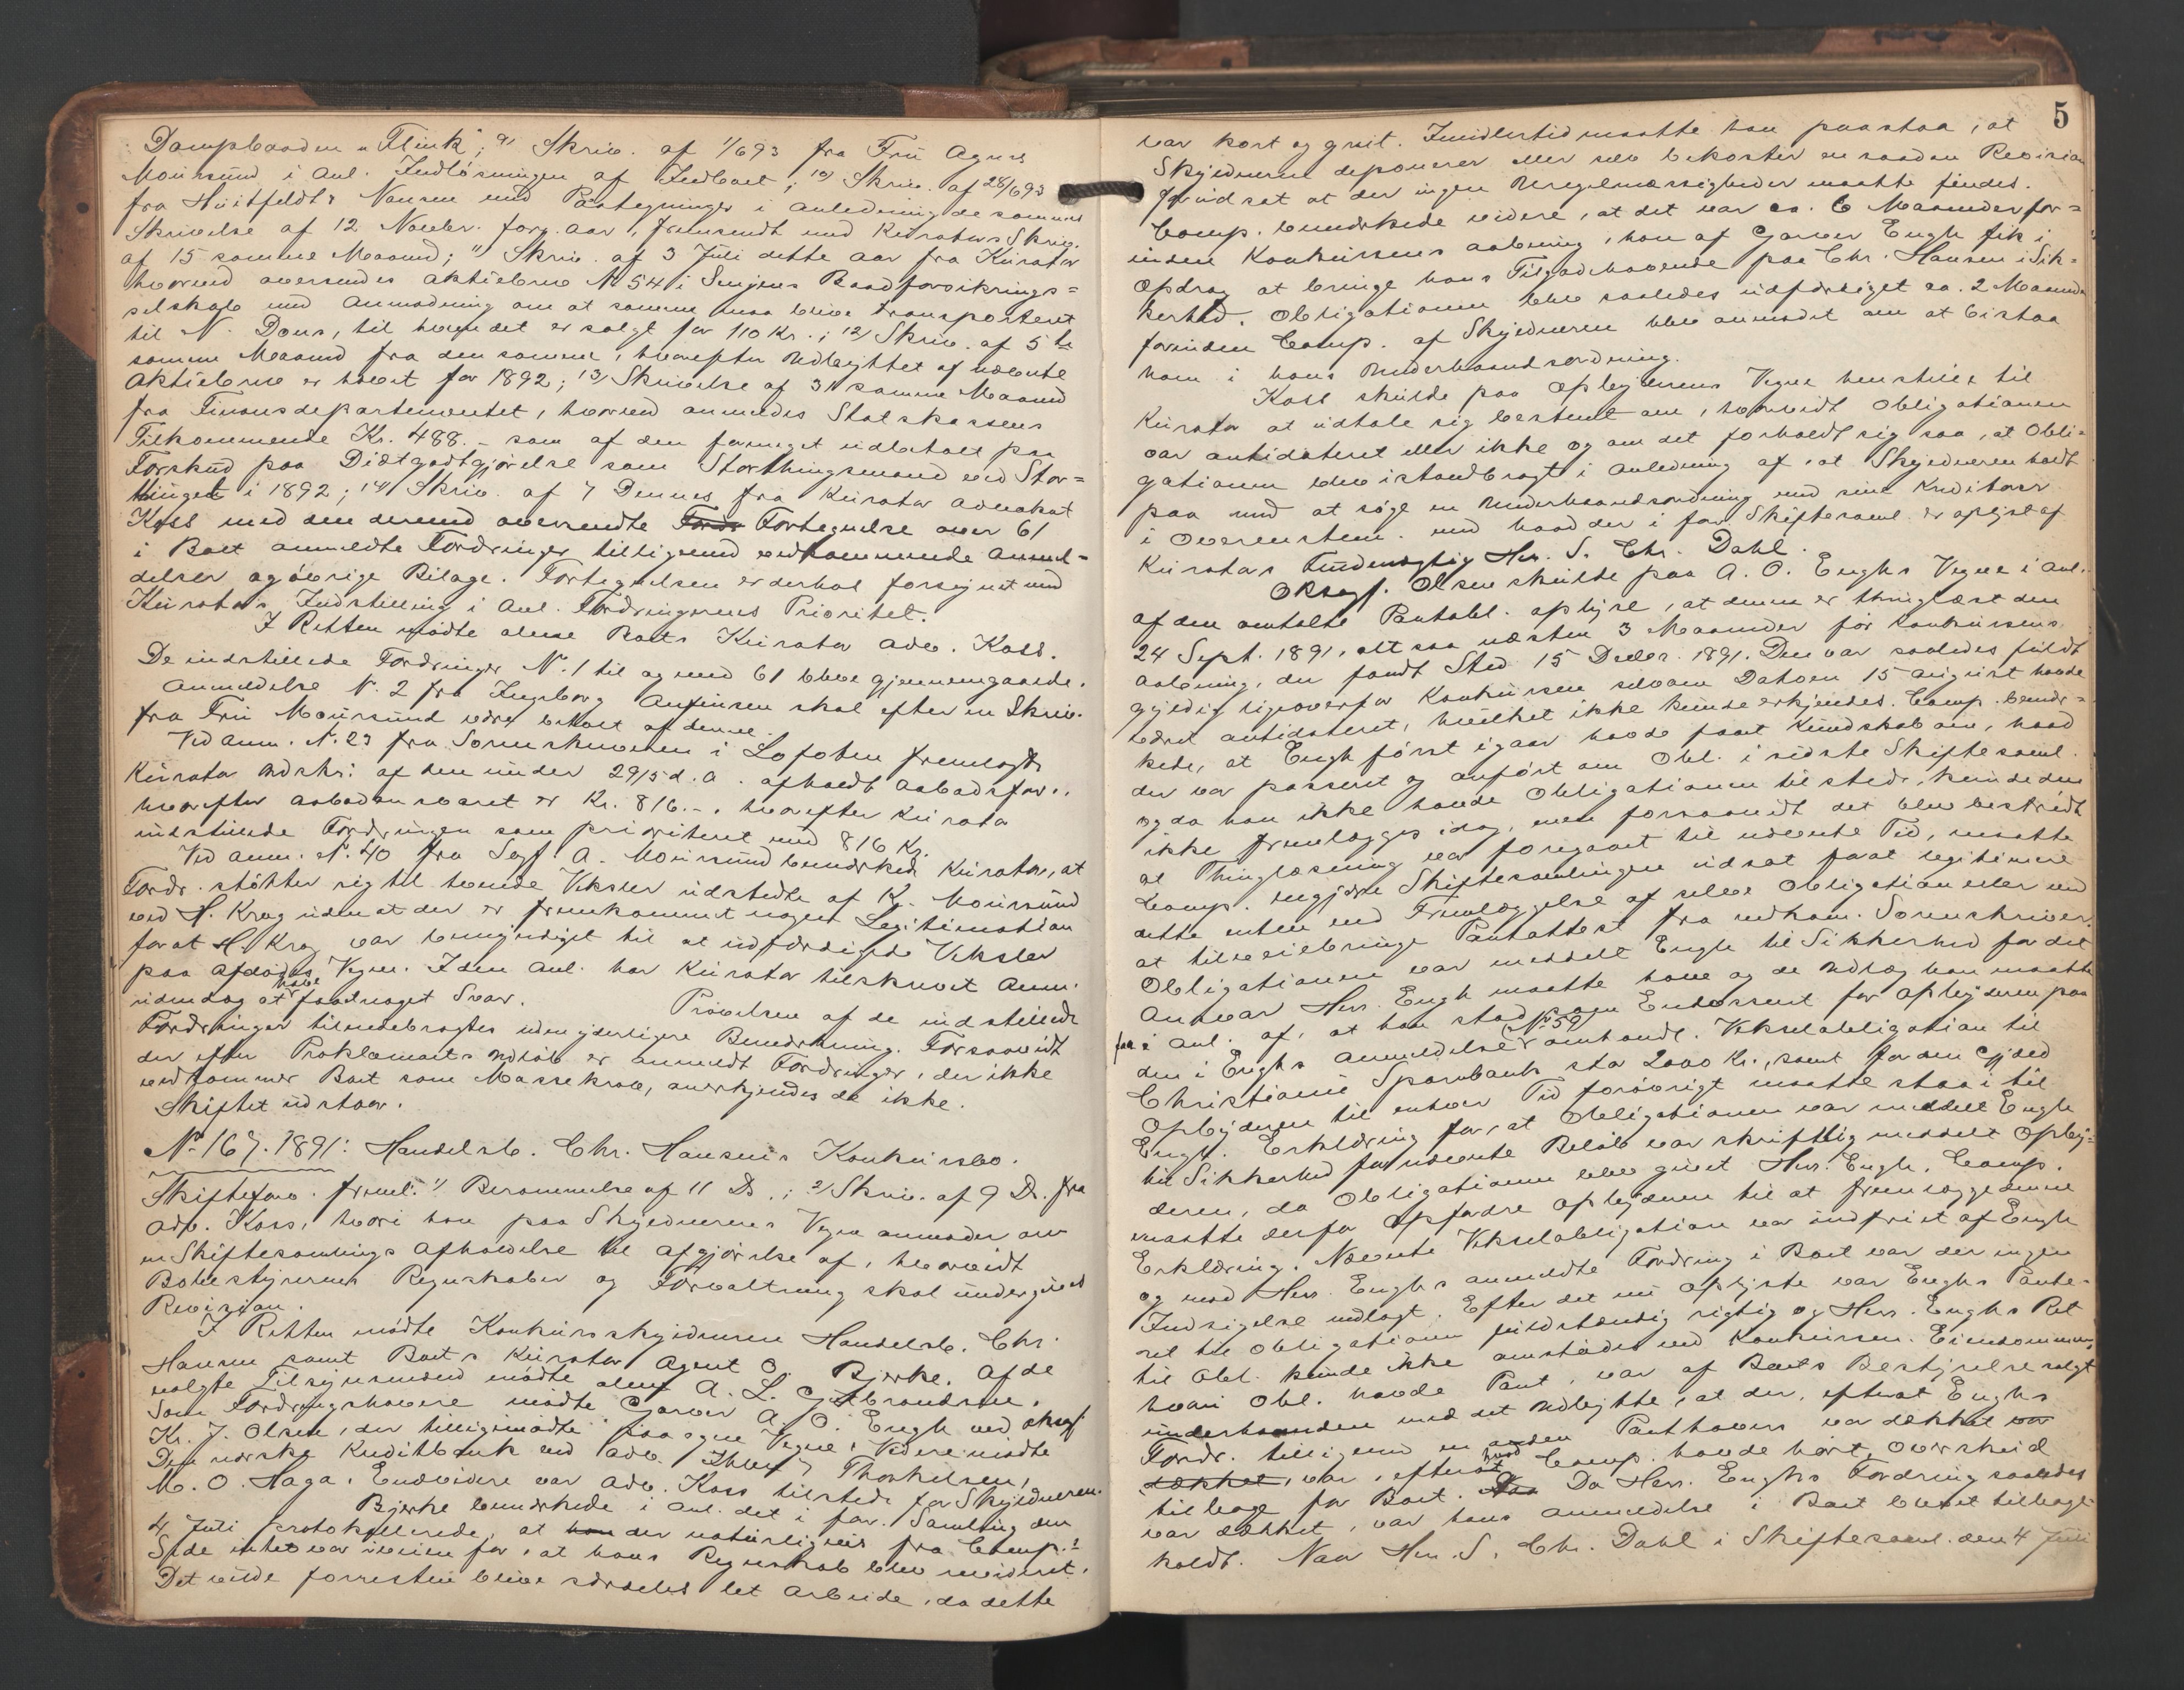 Dampbaaden "Flink"; 9) Skriv. af 1/6 93 fra Fru Agnes
Moursund i Anl. Indløsningen af Indboet; 10) Skriv. af 28/6 93
fra Huitfeldt & Nansen med Paategninger i Anledning de sammes
Skrivelse af 12 Novbr. forg. Aar, fremsendt med Kurators Skriv.
af 15 samme Maaned; 11) Skriv. af 3 Juli dette Aar fra Kurator
hvorved oversendes Aktiebrev N 54 i Senjens Baadforsikrings=
selskab med Anmodning om at samme maa blive transporteret
til N. Dons, til hvem det er solgt for 110 Kr.; 12) Skriv. af 5te
samme Maaned fra den samme, hvorefter Udbyttet af nævnte
Aktiebrev er hævet for 1892; 13) Skrivelse af 31 samme Maaned
fra Finansdepartementet, hvorved anmeldes Statskassens
Tilkommende Kr. 488.- som af den formeget udbetalt paa
Forskud paa Diætgodtgjørelse som Storthingsmand ved Stor=
thinget i 1892; 14) Skriv. af 7 Dennes fra Kurator Advokat
Koss med den derved oversendte Fortegnelse over 61
i Boet anmeldte Fordringer tilligemed vedkommende Anmel=
delser og øvrige Bilage. Fortegnelsen er derhos forsynet med
Kurators Indstilling i Anl. Fordringernes Prioritet.
I Retten mødte alene Boets Kurator Adv. Koss.
De indstillede Fordringer N. 1 til og med 61 blev gjennemgaaede.
Anmeldelse N. 2 fra Ingeborg Anfinsen skal efter en Skriv.
fra Fru Moursund være betalt af denne.
Ved Anm. N. 23 fra Sorenskriveren i Lofoten fremlagde
Kurator Udskr. af den under 29/5 d.A. afholdt Aabodsforr.
hvorefter Aabodsansvaret er Kr. 816.-, hvorefter Kurator
indstillede Fordringen som prioriteret med 816 Kr.
Ved Anm. N. 40 fra Sagf. A. Moursund bemærkede Kurator, at
Fordr. støtter sig til tvende Veksler udstedte af Kr. Moursund
ved H. Krag uden at der er fremkommet nogen Legitimation
for at H. Krag var bemyndiget til at udfærdige Veksler
paa Afdødes Vegne. I den Anl. har Kurator tilskrevet Anm.
uden dog at have faaet noget Svar. Prøvelsen af de indstillede
Fordringer tilendebragtes uden yderligere Bemærkning. Forsaavidt
der efter Proklamaets Udløb er anmeldt Fordringer, der ikke
vedkommer Boet som Massekrav, anerkjendes de ikke.
Skiftet udstaar.
No. 167. 1891: Handelsb. Chr. Hansens Konkursbo.
Skifteforv. freml.: 1) Berammelse af 11 Ds.; 2) Skriv. af 9 Ds. fra
Adv. Koss, hvori han paa Skyldnerens Vegne anmoder om
en Skiftesamlings Afholdelse til Afgjørelse af, hvorvidt
Bobestyrernes Regnskaber og Forvaltning skal undergives
Revision.
I Retten mødte Konkursskyldneren Handelsb. Chr.
Hansen samt Boets Kurator Agent O. Bjerke. Af de
valgte Tilsynsmænd mødte alene A. L. Gulbrandsen.
Som Fordringshavere mødte Garver A. O. Engh ved Oksagf.
Kr. J. Olsen, der tilligemødte paa egne Vegne; videre mødte
Den norske Kreditbank ved Adv. Thorkelsen,
M. O. Haga. Endvidere var Adv. Koss tilstede for Skyldneren.
Bjerke bemærkede i Anl. det i forr. Samling den
4 Juli protokollerede, at der naturligvis fra Comp.s
Side intet var iveien for, at hans Regnskab blev revideret.
Det vilde forresten blive særdeles let Arbeide, da dette
5
var kort og greit. Imidlertid maatte han paastaa, at
Skyldneren deponerer eller selv bekoster en saadan Revision
forudsat at der ingen Uregelmæssigheder maatte findes.
Comp. bemærkede videre, at det var ca. 6 Maaneder for=
inden Konkursens Aabning, han af Garver Engh fik i
Opdrag at bringe hans Tilgodehavende paa Chr. Hansen i Sik=
kerhed. Obligationen blev saaledes udfærdiget ca. 2 Maaneder
forinden Comp. af Skyldneren blev anmodet om at bistaa
ham i hans Underhaandsordning.
Koss skulde paa Opbyderens Vegne henstille til
Kurator at udtale sig bestemt om, hvorvidt Obligationen
var antidateret eller ikke og om det forholdt sig saa, at Obli=
gationen blev istandbragt i Anledning af, at Skyldneren holdt
paa med at søge en Underhaandsordning med sine Kreditorer
i Overenstem. med hvad der i forr. Skiftesaml. er oplyst af
Kurators Fuldmægtig Hr. S. Chr. Dahl.
Oksagf. Olsen skulde paa A. O. Enghs Vegne i Anl.
af den omtalte Pantobl. oplyse, at denne er thinglæst den
24 Sept. 1891, altsaa næsten 3 Maaneder før Konkursens
Aabning, der fandt Sted 15 Decbr. 1891. Den var saaledes fuldt
gyldig ligeoverfor Konkursen selvom Datoen 15 August havde
været antidateret, hvilket ikke kunde erkjendes. Comp. bemær=
kede, at Engh først igaar havde faaet Kundskab om, hvad
der var passeret og anført om Obl. i sidste Skiftesaml.
og da han ikke havde Obligationen tilstede, kunde den
ikke fremlægges idag, men forsaavidt det blev bestridt
at Thinglæsning var foregaaet til nævnte Tid, maatte
Comp. begjære Skiftesamlingen udsat for at legitimere
dette enten ved Fremlæggelse af selve Obligationen eller ved
at tilveiebringe Pantattest fra vedkom. Sorenskriver.
Obligationen var meddelt Engh til Sikkerhed for det
Ansvar Hr. Engh maatte have og de Udlæg han maatte
faa i Anl. af, at han stod som Endossent for Opbyderen paa
den i Enghs Anmeldelse No 59 omhandl. Vekselobligation til
Christiania Sparebank stor 2000 Kr., samt for den Gjæld
Opbyderen til enhver Tid forøvrigt maatte staa i til
Engh. Erklæring for, at Obligationen var meddelt Engh
til Sikkerhed for nævnte Beløb var skriftlig meddelt Opby=
deren, da Obligationen blev givet Hr. Engh. Comp.
maatte derfor opfordre Opbyderen til at fremlægge denne
Erklæring. Nævnte Vekselobligation var indfriet af Engh
og mod Hr. Enghs anmeldte Fordring i Boet var der ingen
Indsigelse nedlagt. Efter det nu oplyste var Enghs Pante=
ret til Obligationen fuldstændig rigtig og Hr. Enghs Ret
til Obl. kunde ikke omstødes ved Konkursen. Eiendommen,
hvori Obl. havde Pant, var af Boets Bestyrelse solgt
underhaanden med det Udbytte, at der, efterat Enghs
Fordr. tilligemed en anden Panthavers var dækket
var, efter hvad Comp. havde hørt, Overskud
tilbage for Boet. Da Hr. Enghs Fordring saaledes
var dækket, var hans Anmeldelse i Boet blevet tilbage=
holdt. Naar Hr. S. Chr. Dahl i Skiftesaml. den 4 Juli